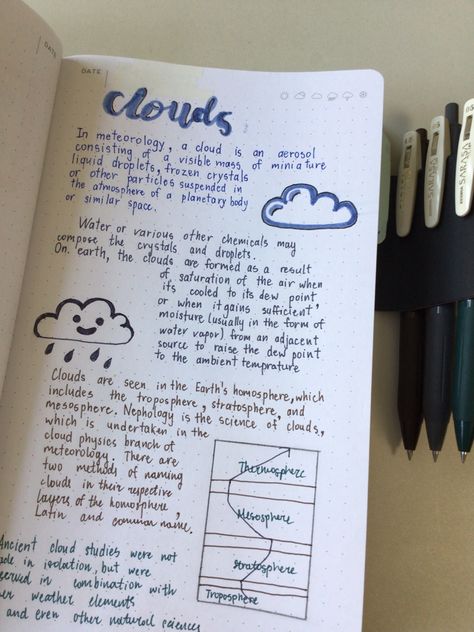 DATE
DATE
clouds
In meteorology, a cloud is an aerosol
consisting of a visible mass of miniature
liquid droplets, frozen crystals
or other particles suspended in
the atmosphere of a planetary body
or similar space.
Water or various other chemicals may
compose the crystals and droplets.
On earth, the clouds are formed as a result
of saturation of the air when
its cooled to its dew point,
or when it gains sufficient
moisture (usually in the form of
water vapor) from an adjacent
source to raise the dew point
to the ambient temprature
Clouds are seen in the Earth's homosphere, which
includes the troposphere, stratosphere, and
mesosphere. Nephology is the science of clouds,
which is undertaken in the
cloud physics branch of
meteorology. There are
two methods of naming
clouds in their repective
layers of the homosphere,
Latin and common name.
Thermosphere
Mesosphere
Stratosphere
Troposphere
Ancient cloud studies were not
made in isolation, but were
observed in combination with
weather elements
and even other natural sciences
SARASA
SARASA